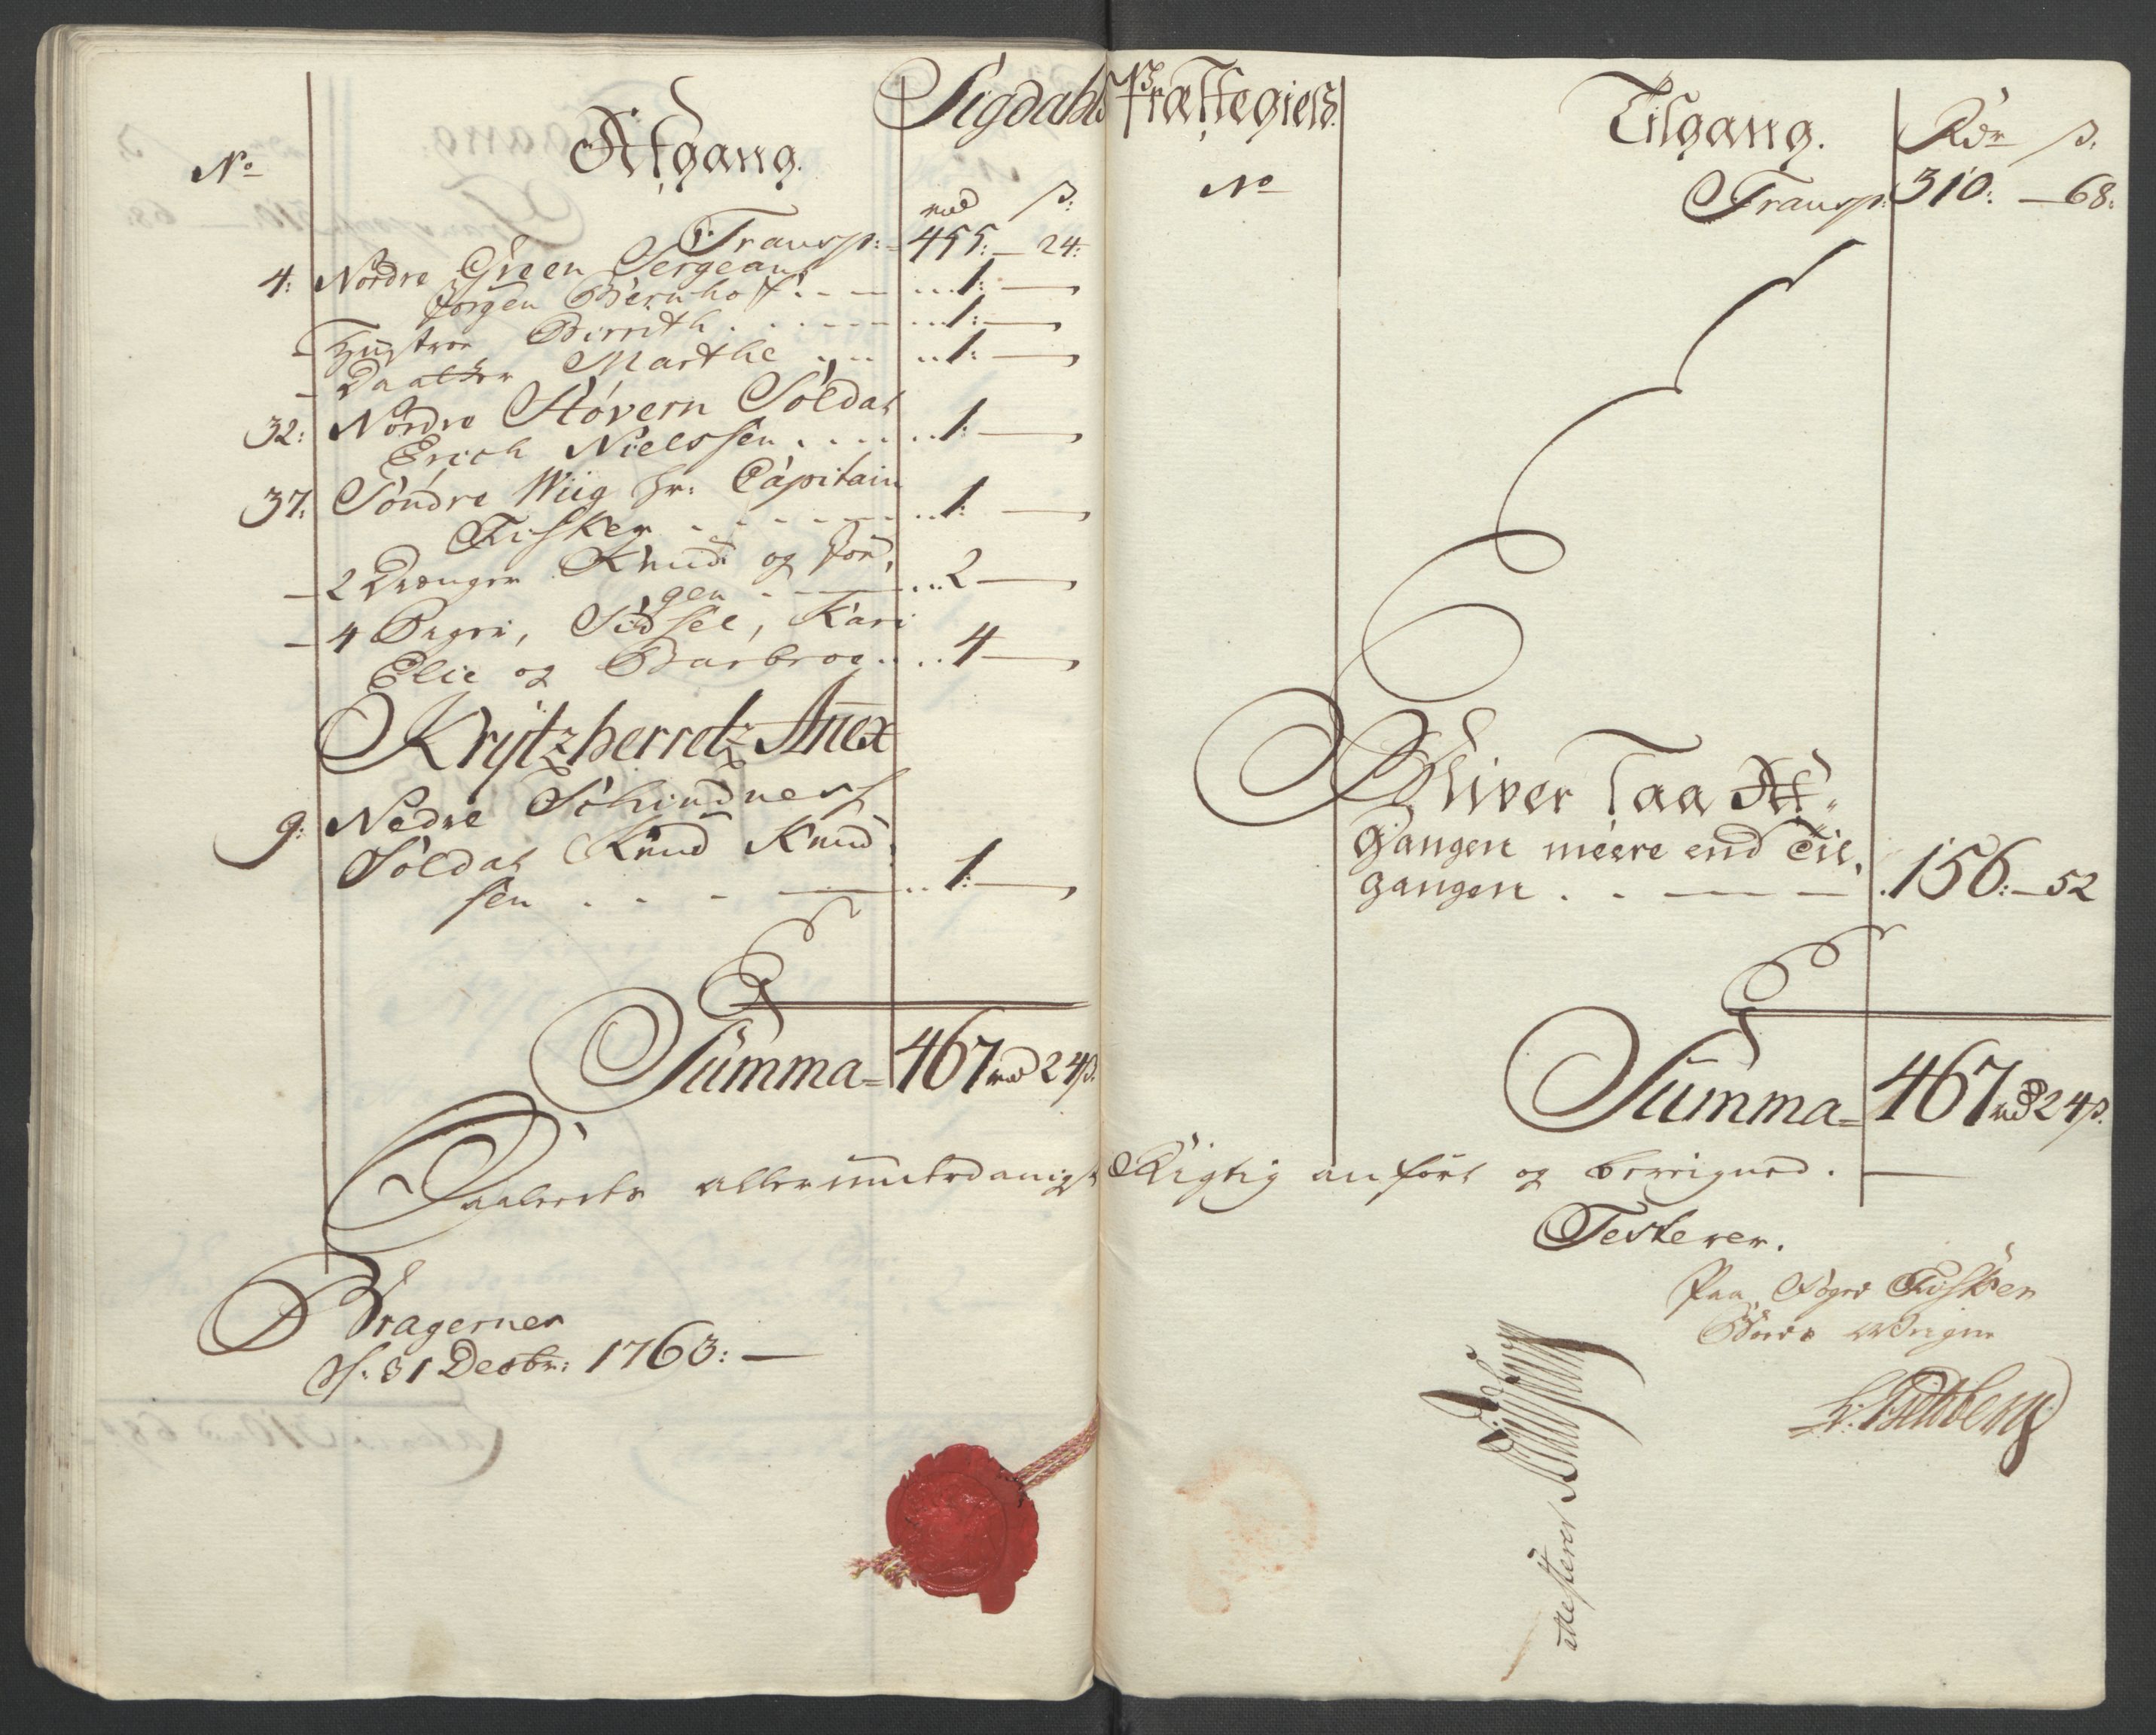 Sigdahls Præstegield
Afgang.
No
rd ß:
Transp: 455:—24:
4: Nordre Green Sergeant
Jørgen Bernhoft . . — ...1:—
- Hustroe Birrith . . . . . — ...1:—
- Daatter Marthe . . . ..1:—
32: Nordre Støvern Soldat
Erich Nielssen . . . . ..1:—
37: Søndre Wiig Hr: Capitain
Fisker . . . . . . ..1:—
- 2 Drænger Knud og Jør,
gen . — ...2—
- 4 Piger, Sidsel, Kari
Elie og Barbroe . . . 4—
Krytzherretz Anex
9: Nedre Schindness
Soldat Knud Knud,
sen . . . — ..1:—
Summa = 467 rd 24 ß.
Tilgang.
Rdr ß.
No
Transp: 310:—68:
Bliver saa Af,
Gangen meere end Til,
gangen . . — — — .156:—52
Summa = 467 rd 24 ß.
Saaledes allerunderdanigst Rigtig anført og beregned.—
Testerer.
Bragernes
d. 31 Decbr: 1763:—
Paa Foged Fiskers
Vegne
Attesterer